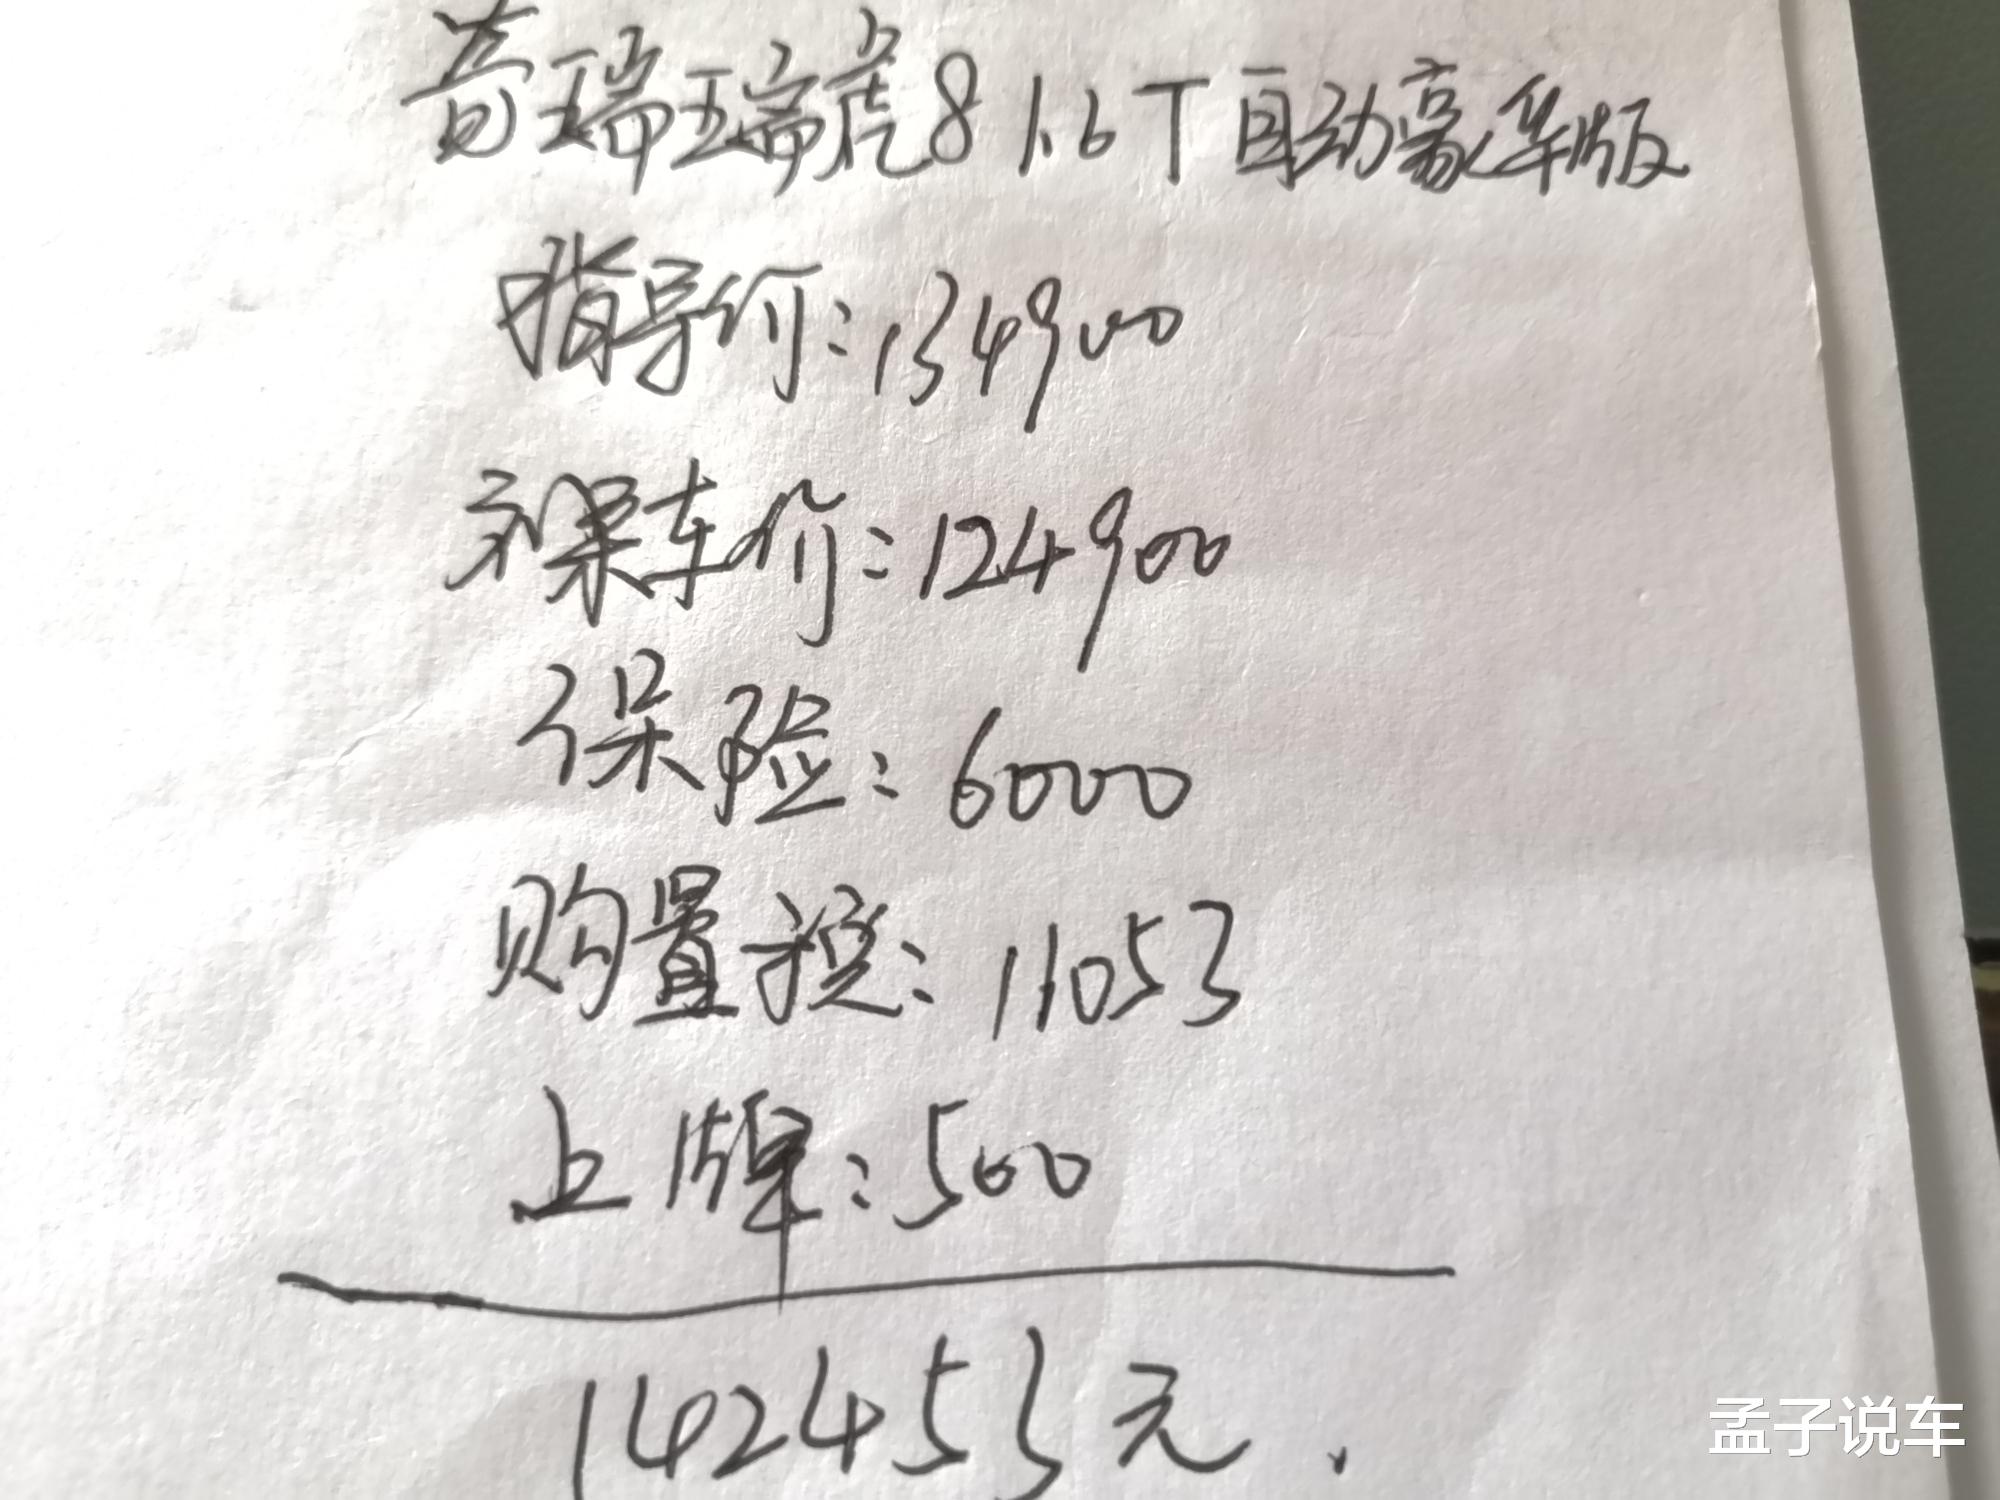 奇瑞瑞虎8 1.6T自动豪华版
指导价:134900
裸车价:124900
保险:6000
购置税:11053
上牌:500
142453元.
孟子说车